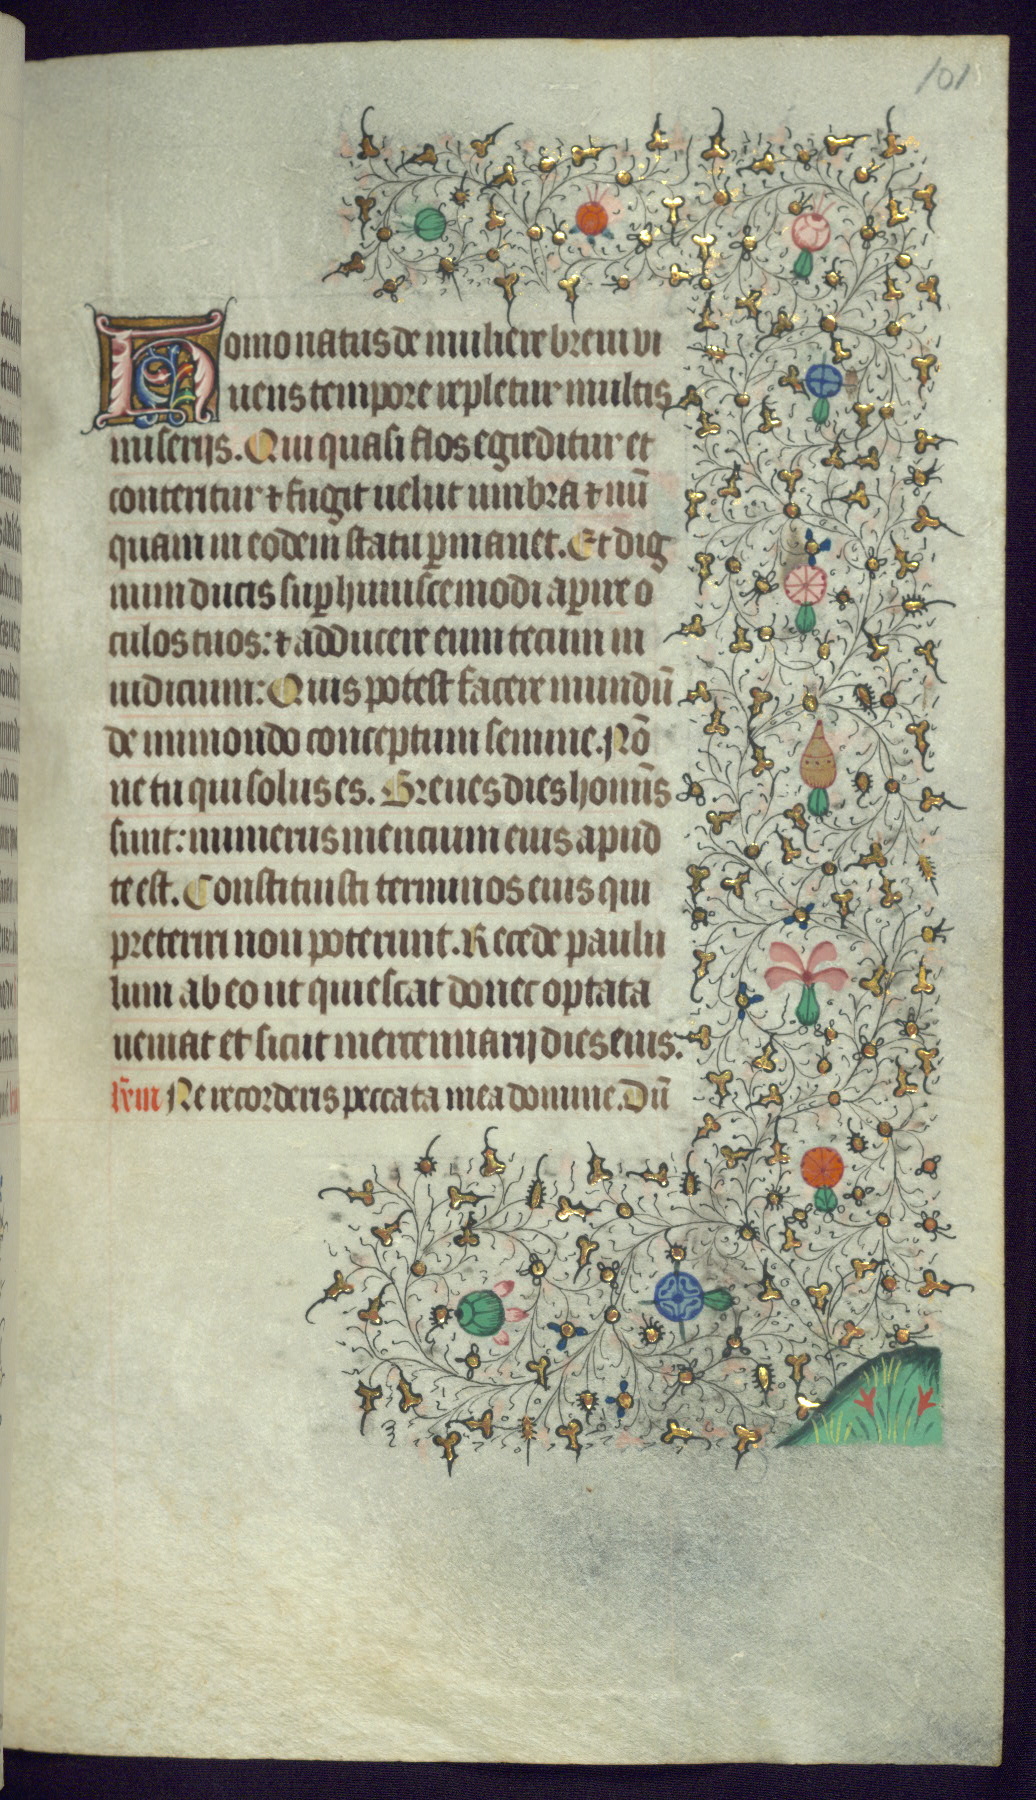 101
Homo natus de muliere breui vi
uens tempore repletur multis
miserijs. Qui quasi flos egreditur et
conteritur ⁊ fugit uelut umbra ⁊ nū
quam in eodem statu ꝑmanet. Et dig
num ducis suꝑ huiuscemodi aꝑire o
culos tuos: ⁊ adducere eum tecum in
iudicium: Quis potest facere mundū
de inmondo conceptum semine. Nō
ne tu qui solus es. Breues dies homīs
sunt: numerus mencium eius apud
te est. Constituisti terminos eius qui
preteriri non poterunt. Recede paulu
lum ab eo ut quiescat donec optata
ueniat et sicut mercennarij dies eius.
Ne recorderis peccata mea domine. Dū